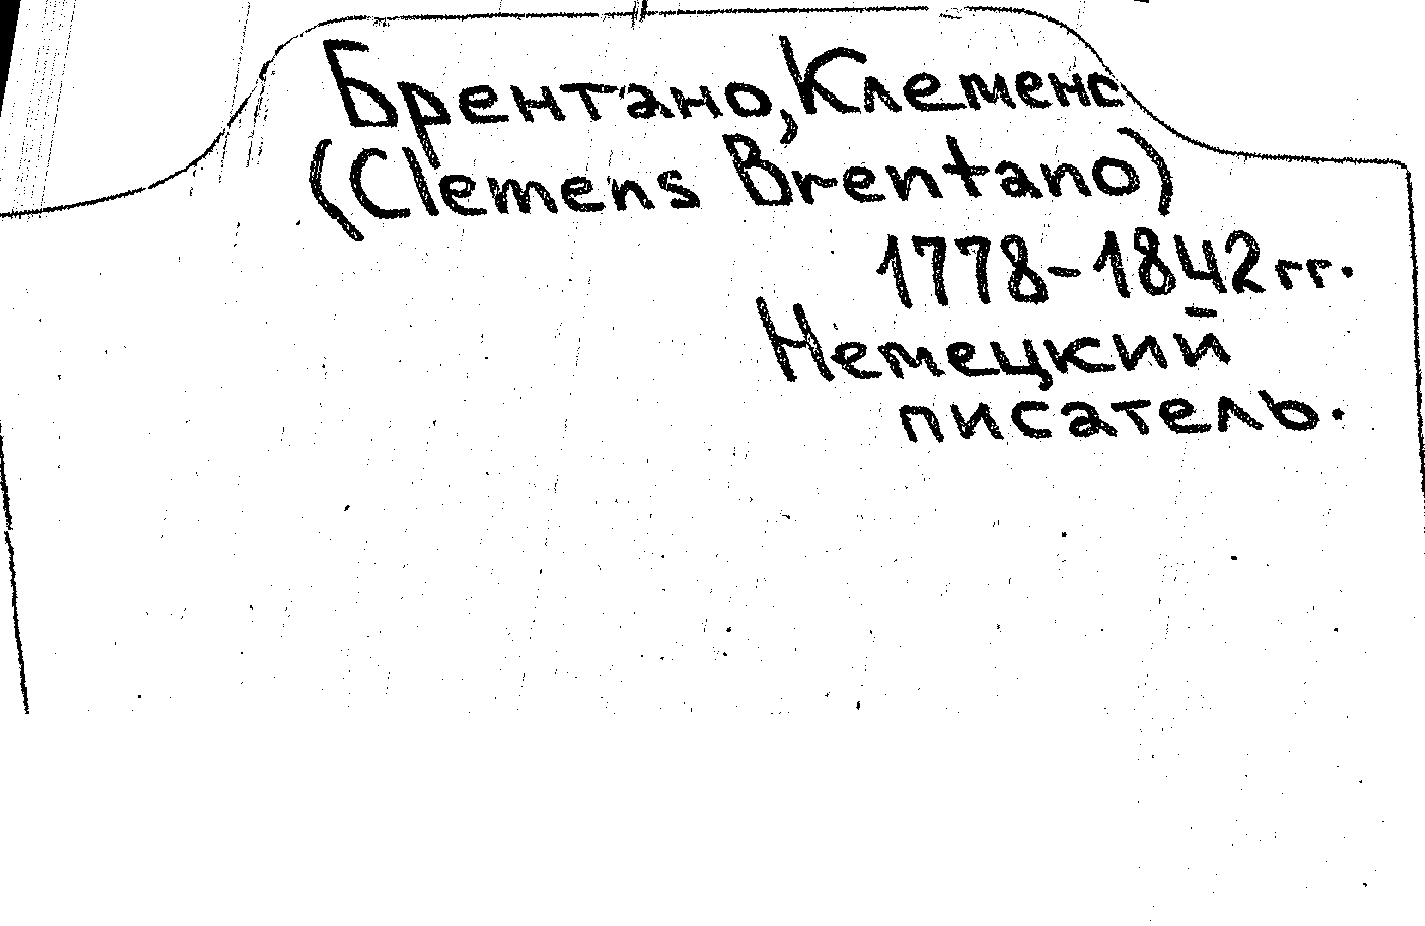 Брентано, Клеменс
(Clemens Brentano)
1778-1842 гг.
Немецкий
писатель.